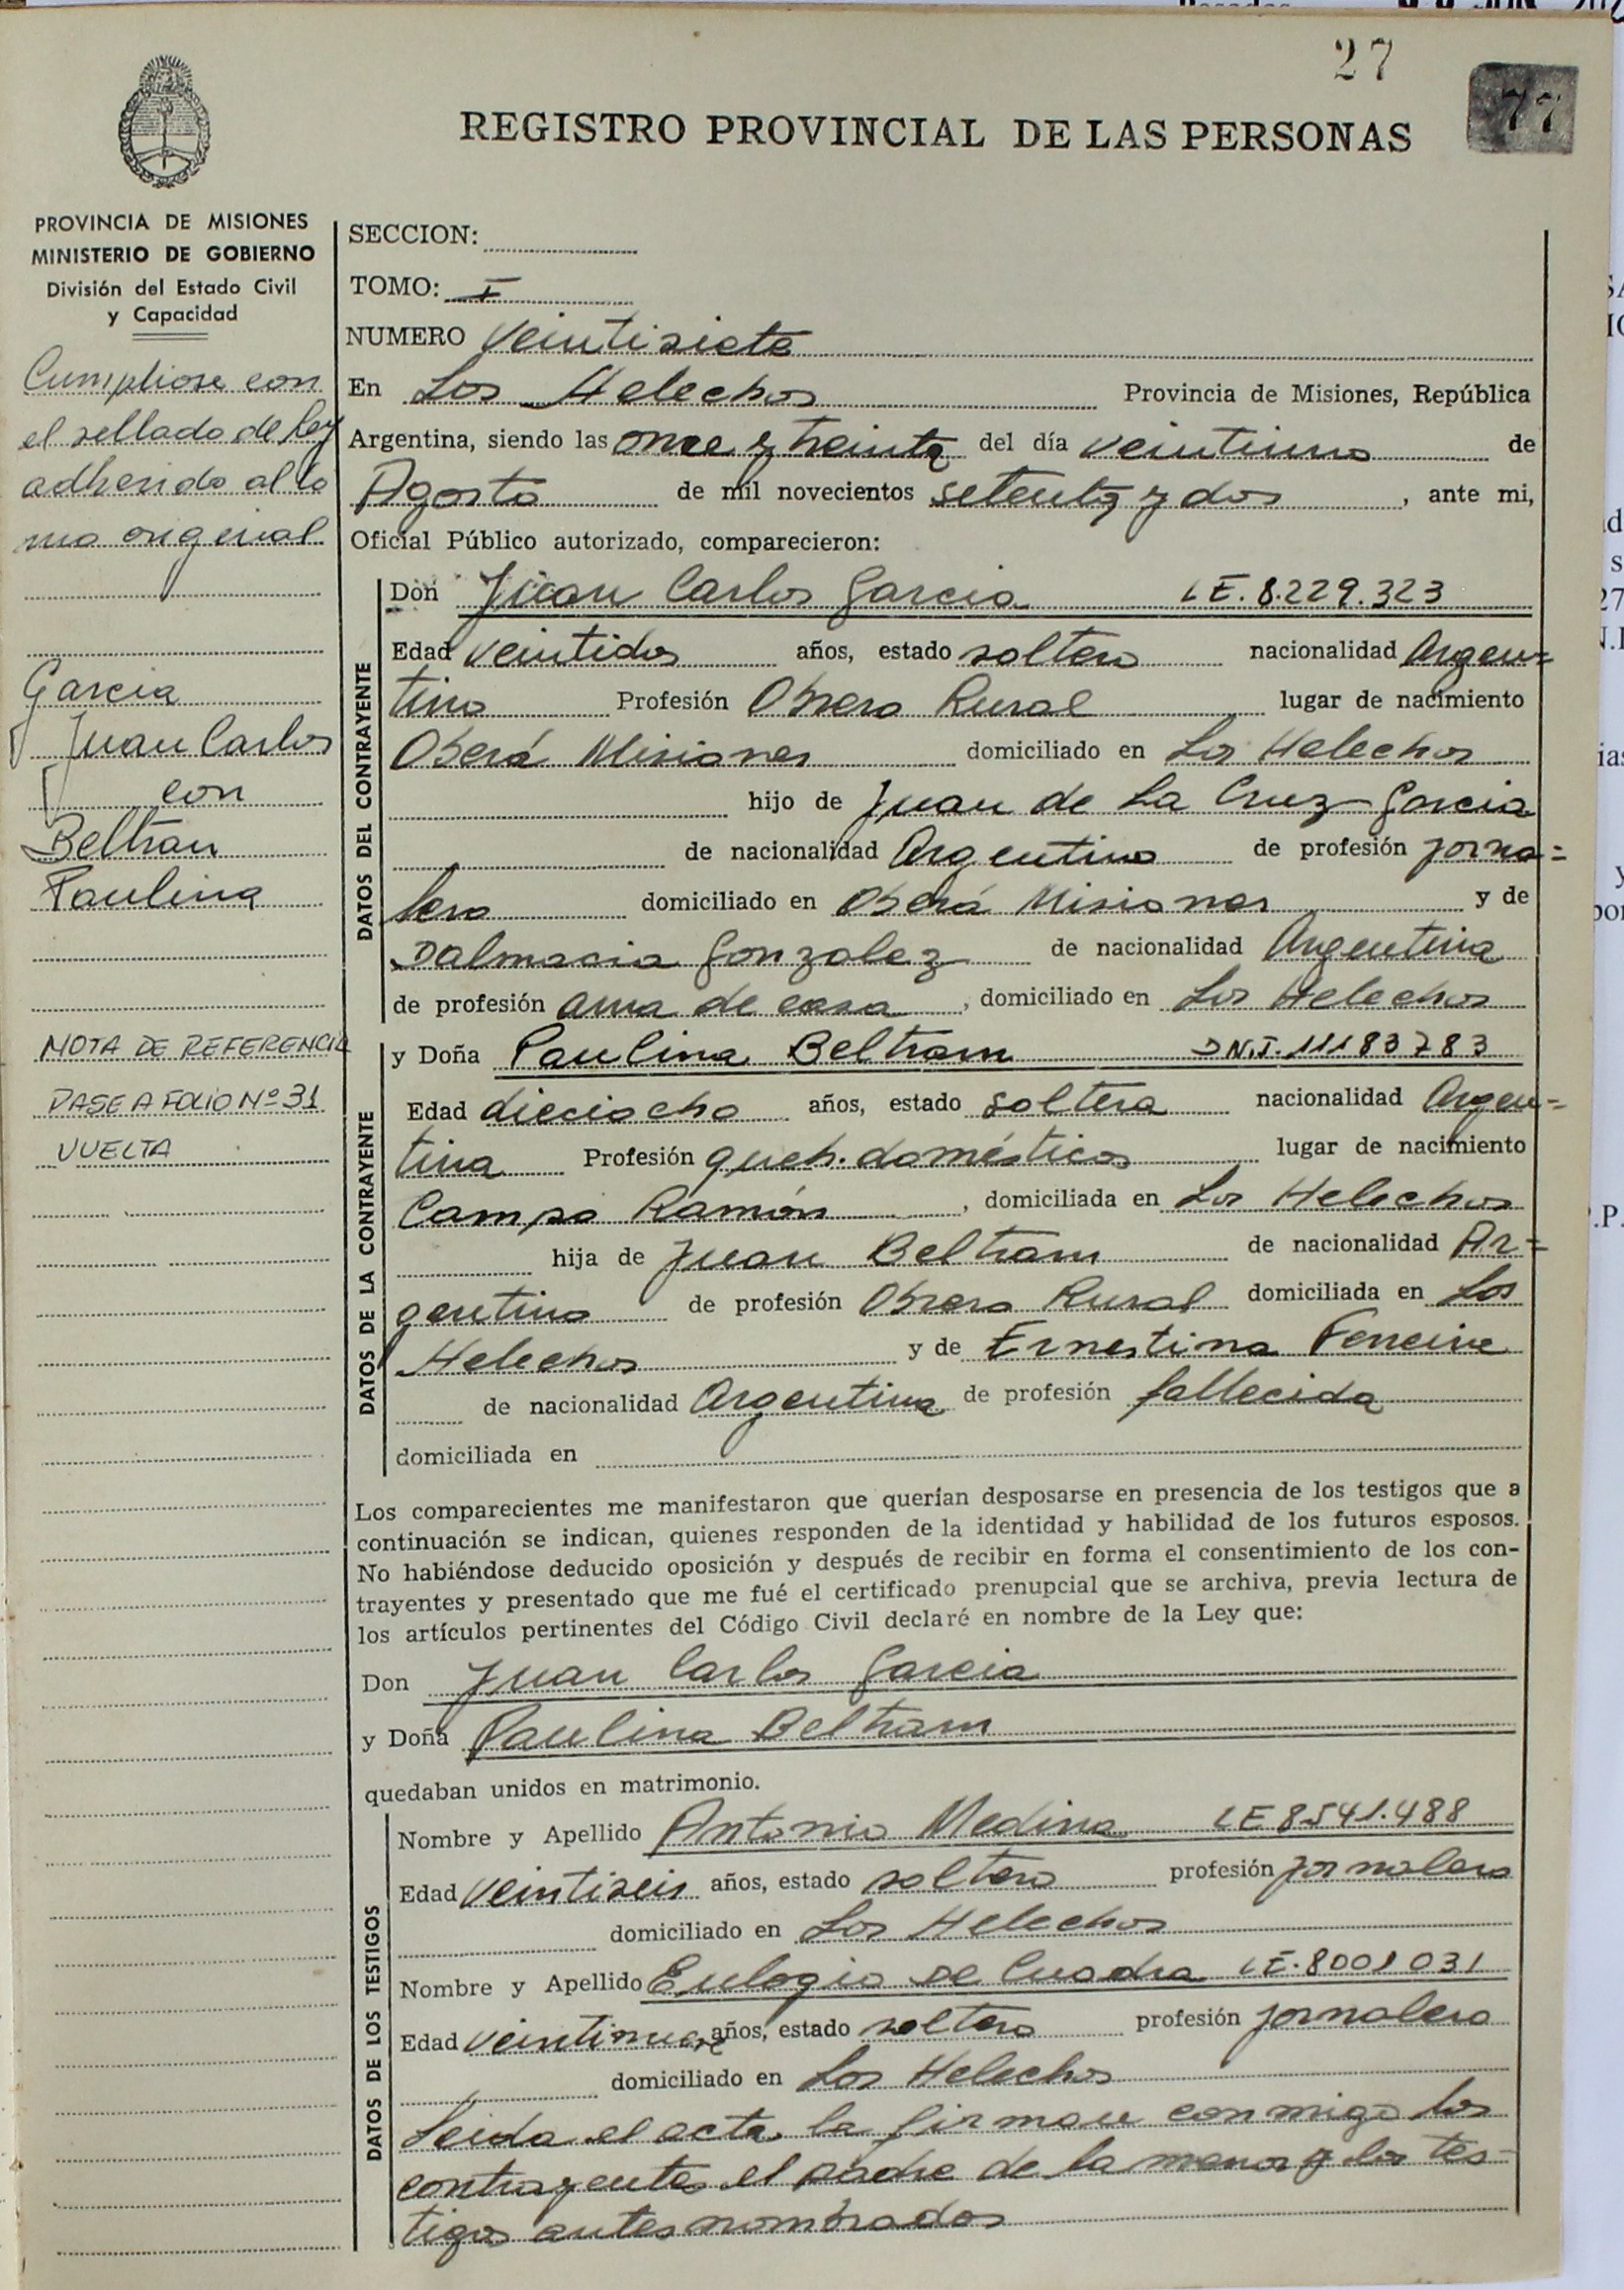 27
77
REGISTRO PROVINCIAL DE LAS PERSONAS
PROVINCIA DE MISIONES
MINISTERIO DE GOBIERNO
División del Estado Civil
y Capacidad
Cumpliose con
el sellado de ley
adherido al to
mo original
Garcia
Juan Carlos
con
Beltran
Paulina
NOTA DE REFERENCIA
PASE A FOLIO Nº 31
VUELTA
SECCION:
TOMO: I
NUMERO Veintisiete
En Los Helechos Provincia de Misiones, República
Argentina, siendo las once y treinta del día veintiuno de
Agosto de mil novecientos setenta y dos, ante mi,
Oficial Público autorizado, comparecieron:
DATOS DEL CONTRAYENTE
Don Juan Carlos Garcia LE. 8.229.323
Edad veintidos años, estado soltero nacionalidad Argen=
tino Profesión Obrero Rural lugar de nacimiento
Oberá Misiones domiciliado en Los Helechos
hijo de Juan de La Cruz Garcia
de nacionalidad Argentino de profesión jorna=
lero domiciliado en Oberá Misiones y de
Dalmacia Gonzalez de nacionalidad Argentina
de profesión ama de casa, domiciliado en Los Helechos
DATOS DE LA CONTRAYENTE
y Doña Paulina Beltram DN.I. 11183783
Edad dieciocho años, estado soltera nacionalidad Argen=
tina Profesión queh. domésticos lugar de nacimiento
Campo Ramón, domiciliada en Los Helechos
hija de Juan Beltram de nacionalidad Ar=
gentino de profesión Obrero Rural domiciliada en Los
Helechos y de Ernestina Ferreira
de nacionalidad Argentina de profesión fallecida
domiciliada en
Los comparecientes me manifestaron que querían desposarse en presencia de los testigos que a
continuación se indican, quienes responden de la identidad y habilidad de los futuros esposos.
No habiéndose deducido oposición y después de recibir en forma el consentimiento de los con-
trayentes y presentado que me fué el certificado prenupcial que se archiva, previa lectura de
los artículos pertinentes del Código Civil declaré en nombre de la Ley que:
Don Juan Carlos Garcia
y Doña Paulina Beltram
quedaban unidos en matrimonio.
DATOS DE LOS TESTIGOS
Nombre y Apellido Antonio Medina LE 8541.488
Edad Veintiseis años, estado soltero profesión jornalero
domiciliado en Los Helechos
Nombre y Apellido Eulogio De Cuadra LE. 8001031
Edad veintinueve años, estado soltero profesión jornalero
domiciliado en Los Helechos
Leida el acta, la firman conmigo los
contrayentes el padre de la menor y los tes-
tigos antes nombrados